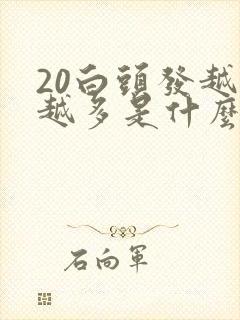 20白頭發越
越多是什麼
石向軍